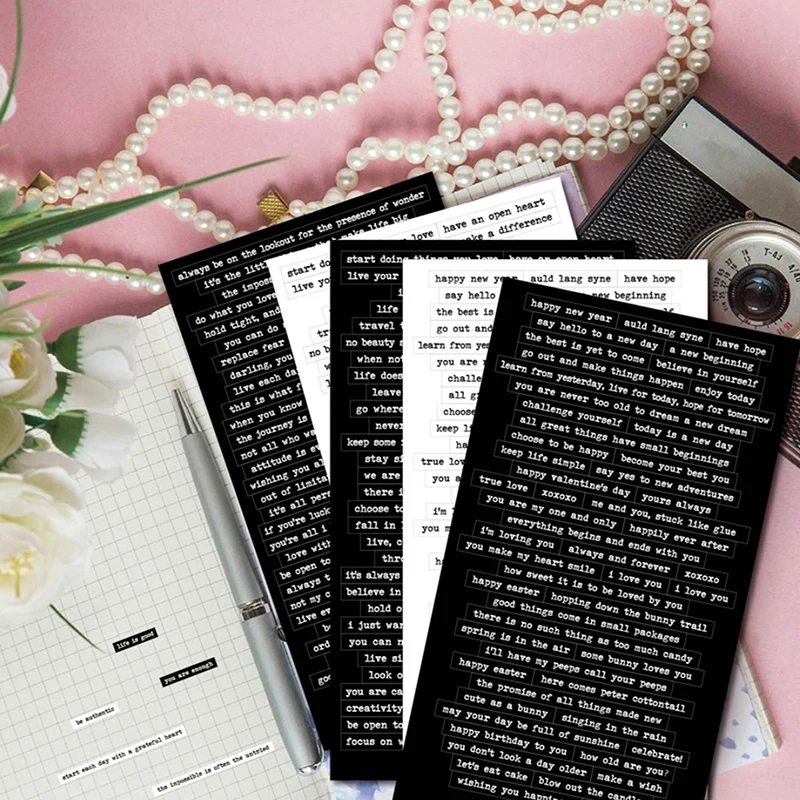 always be on the lookout for the presence of wonder
it's the littl
make life big
the impos
do what you love
hold tight, and
you can do
replace fear
darling, you
live each da
this is what
when you know
the journey is
not all who wa
attitude is ev
wishing you al
out of limita
it's all pers
if you're luck
you're all i
love with
be open to
always t
not my c
live ev
be
ord
goo
love have an open heart
start do
make a difference
live you
tr
no b
start doing things you love have an open heart
live your
life
travel t
no beauty s
when not
life does
leave
go where
never
keep some
stay si
we are
there i
choose to
fall in l
live, c
thro
it's always
believe in
hold o
i just wan
you can n
live si
look o
you are ca
creativity
be open to
focus on w
happy new year auld lang syne have hope
say hello new beginning
the best is
go out and
learn from yest
you are n
challe
all gr
choose
keep li
ha
true lov
you a
i'm l
you m
ha
happy new year auld lang syne have hope
say hello to a new day a new beginning
the best is yet to come believe in yourself
go out and make things happen enjoy today
learn from yesterday, live for today, hope for tomorrow
you are never too old to dream a new dream
challenge yourself today is a new day
all great things have small beginnings
choose to be happy become your best you
keep life simple say yes to new adventures
happy valentine's day yours always
true love xoxoxo me and you, stuck like glue
you are my one and only happily ever after
everything begins and ends with you
i'm loving you always and forever xoxoxo
you make my heart smile i love you i love you
how sweet it is to be loved by you
happy easter hopping down the bunny trail
good things come in small packages
there is no such thing as too much candy
spring is in the air some bunny loves you
i'll have my peeps call your peeps
happy easter here comes peter cottontail
the promise of all things made new
cute as a bunny singing in the rain
may your day be full of sunshine celebrate!
happy birthday to you how old are you?
you don't look a day older make a wish
let's eat cake blow out the candle
wishing you happin
T-4J
life is good
you are enough
be authentic
start each day with a grateful heart
the impossible is often the untried